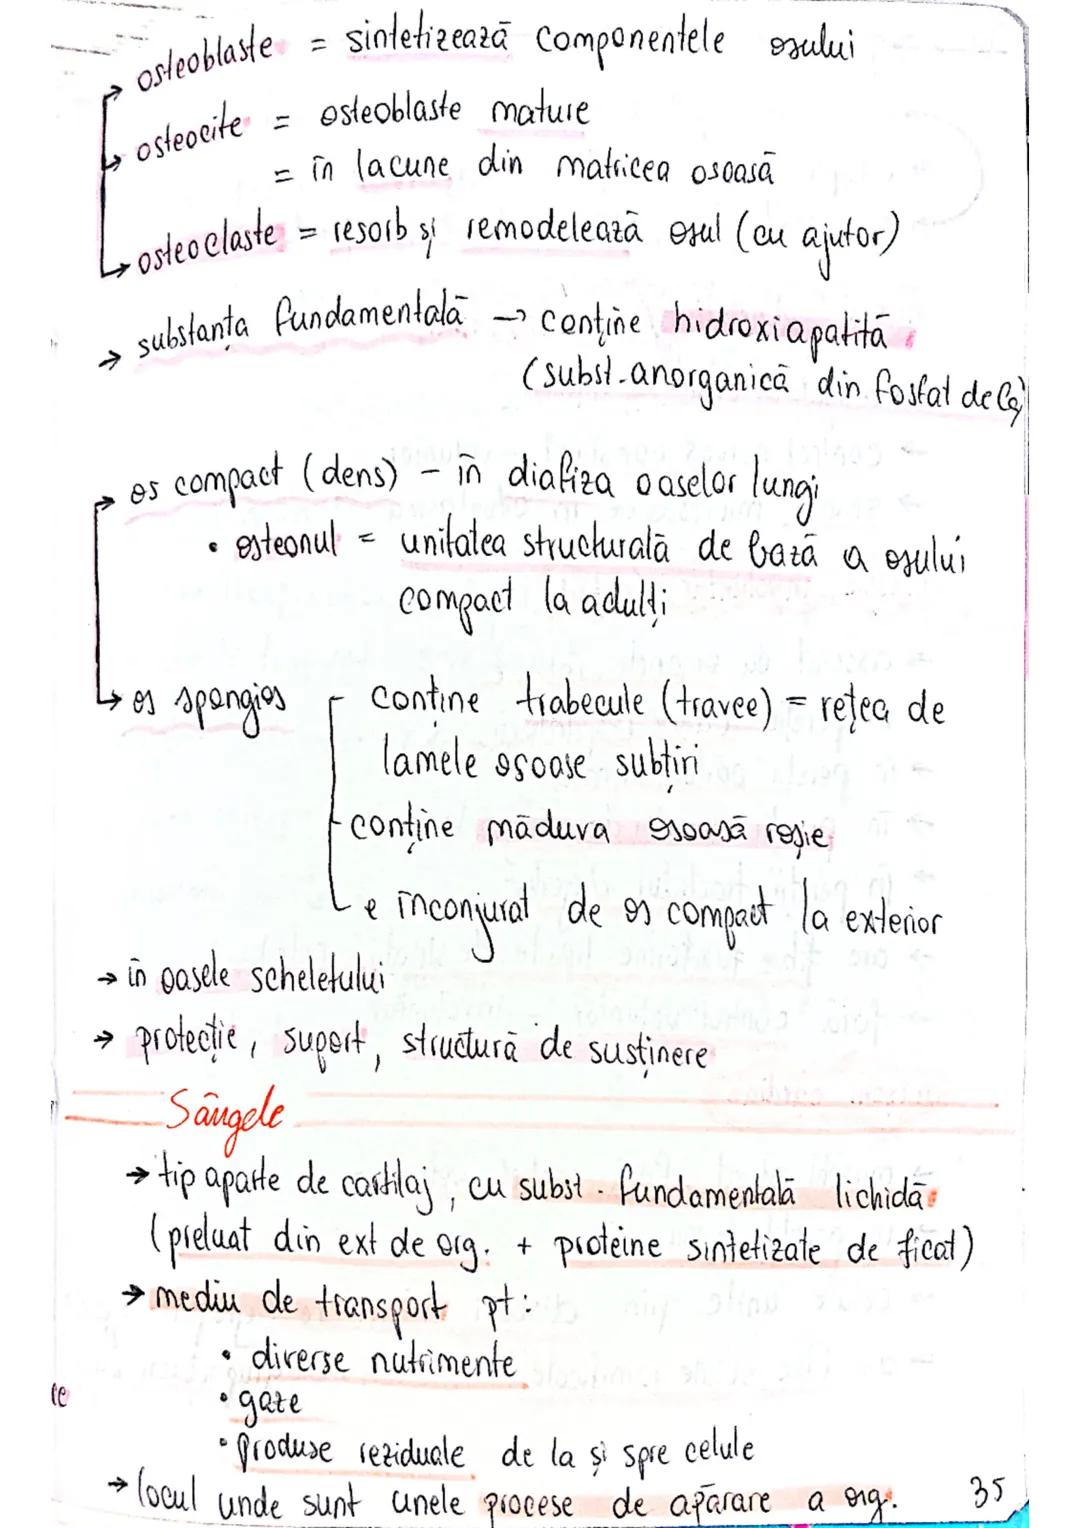 osteoblaste = sintetizează componentele osului
osteocite = osteoblaste mature
= în lacune din matricea osoasă
osteoclaste = resorb și remodelează osul (cu ajutor)
→ substanța fundamentală → conține hidroxiapatită
(subst. anorganică din fosfat de Ca)
os compact (dens) - în diafiza oaselor lungi
• osteonul = unitatea structurală de bază a osului
compact la adulți
os spongios
conține trabecule (travee) = rețea de
lamele osoase subțiri
conține măduva osoasă roșie
e înconjurat de os compact la exterior
→ în oasele scheletului
→ protecție, suport, structură de susținere
Sângele
→ tip aparte de cartilaj, cu subst. fundamentală lichidă
(preluat din ext de org. + proteine sintetizate de ficat)
→ mediu de transport pt:
• diverse nutrimente
• gaze
• produse reziduale de la și spre celule
→ locul unde sunt unele procese de apărare a org.
35